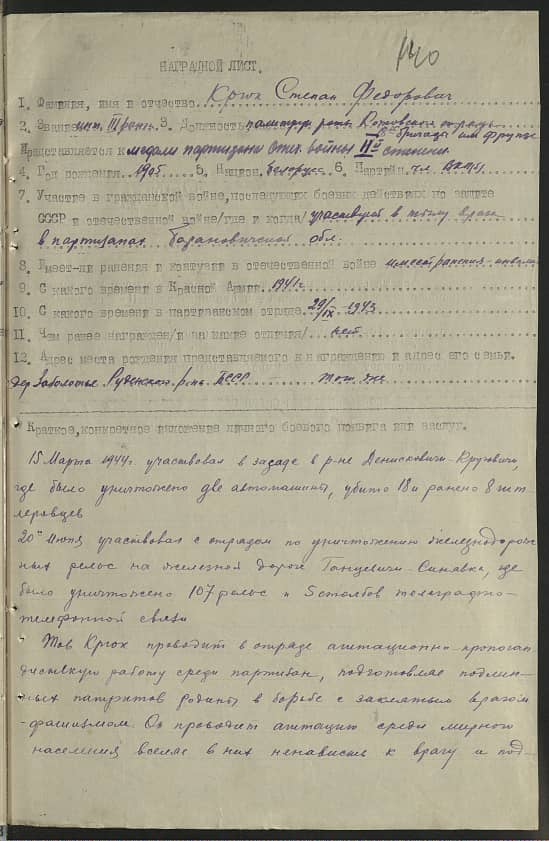 140
НАГРАДНОЙ ЛИСТ.
1. Фамилия, имя и отчество Крюк Степан Федорович
2. Звание инт. III ранг. 3. Должность политрук роты Котовского отряда
бригады им Фрунзе
Представляется к медали партизана отеч. войны IIй степени
4. Год рождения 1905 5. Национ. белорусс 6. Партийн. чл. ВКП(б)
7. Участие в гражданской войне, последующих боевых действиях по защите
СССР и отечественной войне/где и когда/ участвует в тылу врага
в партизанах Барановичской обл.
8. Имеет-ли ранения и контузии в отечественной войне имеет ранения
9. С какого времени в Красной Армии 1941 г.
10. С какого времени в партизанском отряде 29/IX - 1943
11. Чем ранее награжден/и за какие отличия/ нет
12. Адрес места рождения представляемого к награждению и адрес его семьи.
дер Заболотье Руденский р-н БССР там же
Краткое, конкретное изложение личного боевого подвига или заслуг.
15 Марта 1944 г. участвовал в засаде в р-не Денисковичи-Круговичи,
где было уничтожено две автомашины, убито 18 и ранено 8 гит-
леровцев
20го Июня участвовал с отрядом по уничтожению железнодорож-
ных рельс на железной дороге Ганцевичи-Синявка, где
было уничтожено 107 рельс и 5 столбов телеграфно-
телефонной связи
Тов Крюк проводит в отряде агитационно-пропоган-
дистскую работу среди партизан, подготовляе подлин-
ных патриотов родины в борьбе с заклятым врагом
-фашизмом. Он проводит агитацию среди мирного
населения вселяе в них ненависть к врагу и под-